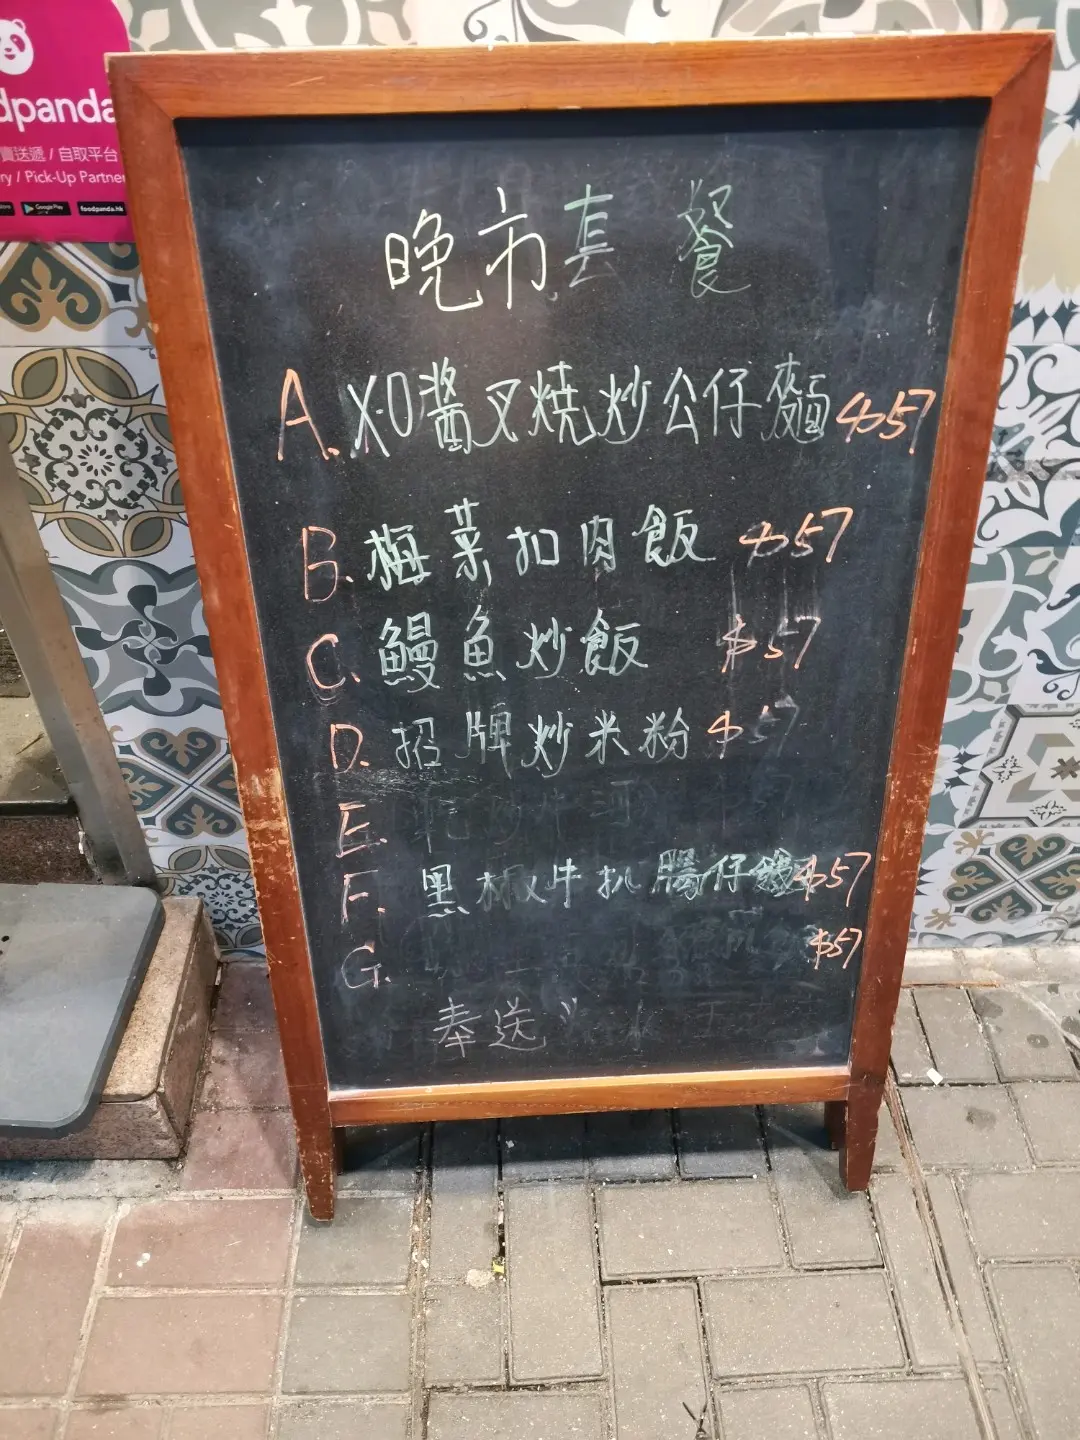 dpanda
賣送遞 / 自取平台
ry / Pick-Up Partner
Google Play
foodpanda.hk
晚市套餐
A. XO醬叉燒炒公仔麵 $57
B. 梅菜扣肉飯 $57
C. 鰻魚炒飯 $57
D. 招牌炒米粉 $57
E. 乾炒牛河
F. 黑椒牛扒腸仔 $57
G. $57
奉送